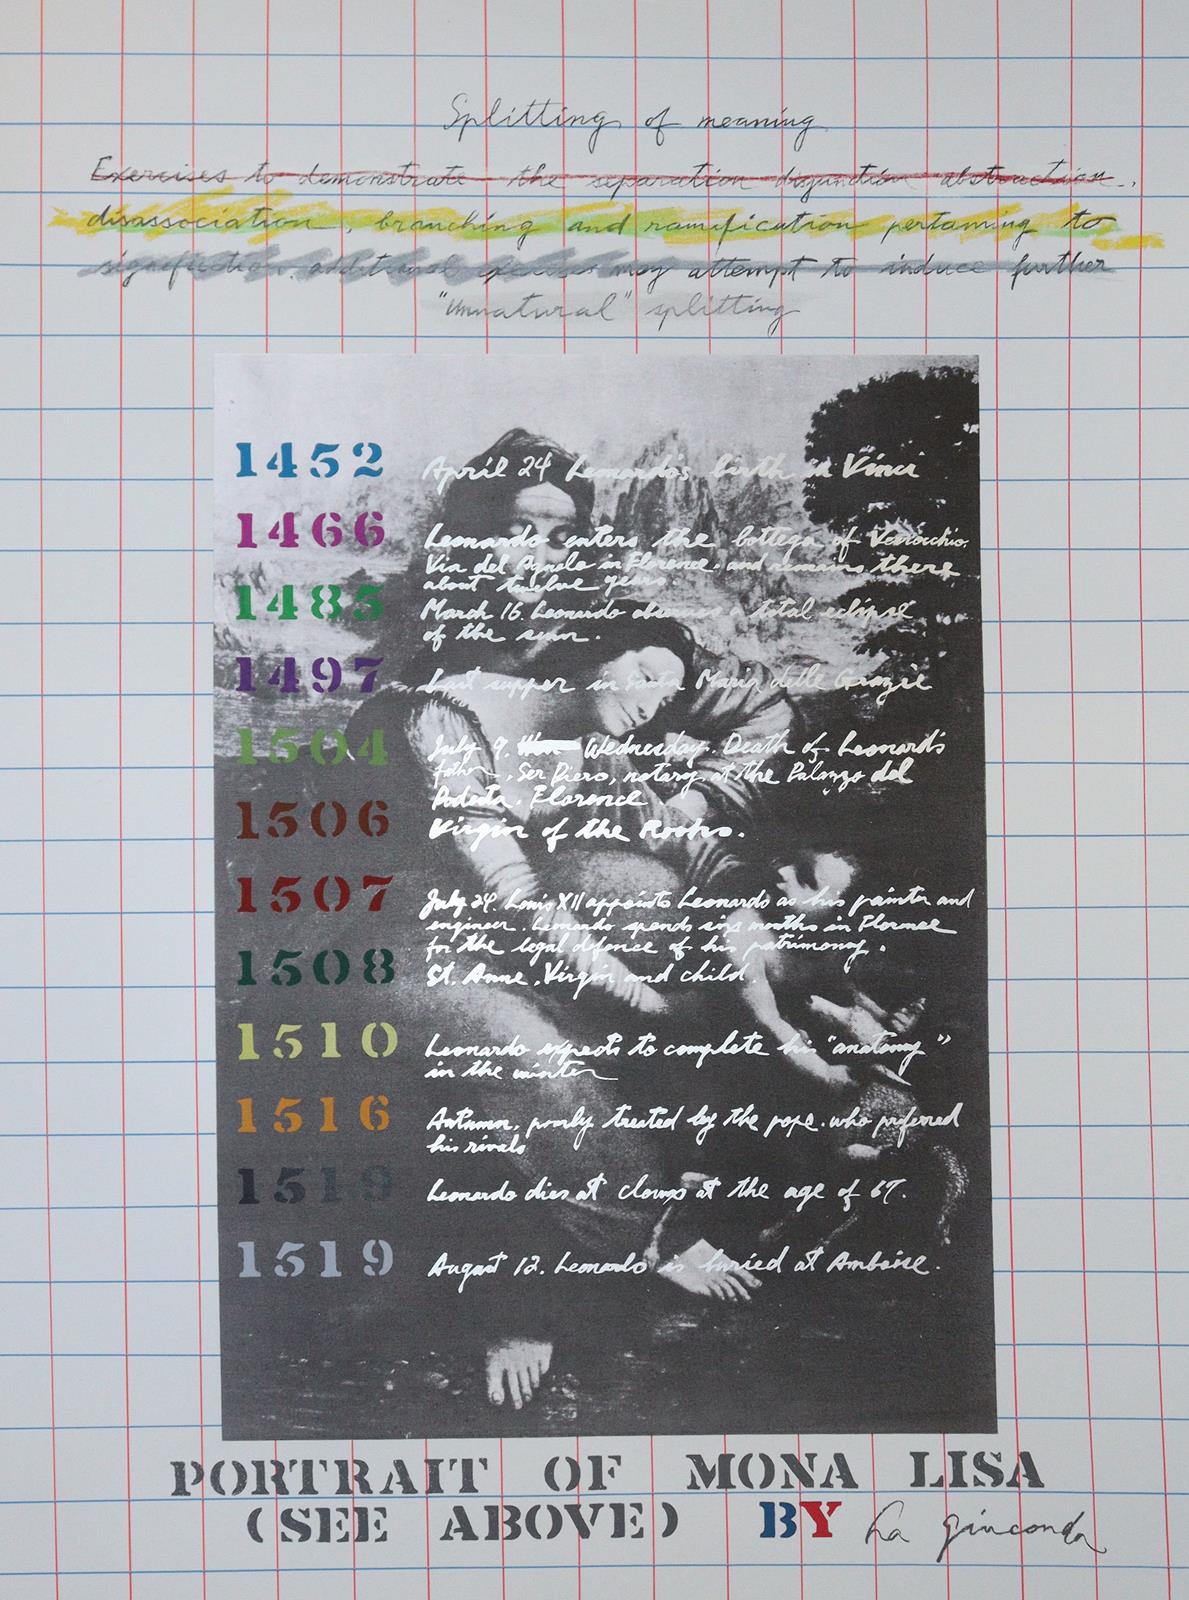 Splitting of meaning
Exercises to demonstrate the separation disjunction abstraction..
disassociation, branching and ramification pertaining to
may attempt to induce further
"unnatural" splitting
1452 April 24 Leonardo's birth in Vinci
1466 Leonardo enters the bottega of Verrocchio.
Via del Agnolo in Florence. and remains there
about twelve years.
1485 March 16. Leonardo observes a total eclipse
of the sun.
1497 Last supper in Santa Maria delle Grazie
1504 July 9. Wednesday. Death of Leonard's
father, Ser Piero, notary at the Palazzo del
Podesta. Florence.
1506 Virgin of the Rocks.
1507 July 24. Louis XII appoints Leonardo as his painter and
engineer. Leonardo spends months in Florence
for the legal defence of his patrimony.
1508 St. Anne, Virgin and child.
1510 Leonardo expects to complete his "anatomy"
in the winter
1516 Autumn. poorly treated by the pope. who preferred
his rivals
1519 Leonardo dies at at the age of 67.
1519 August 12. Leonardo is buried at Amboise.
PORTRAIT OF MONA LISA
(SEE ABOVE) BY La Gioconda